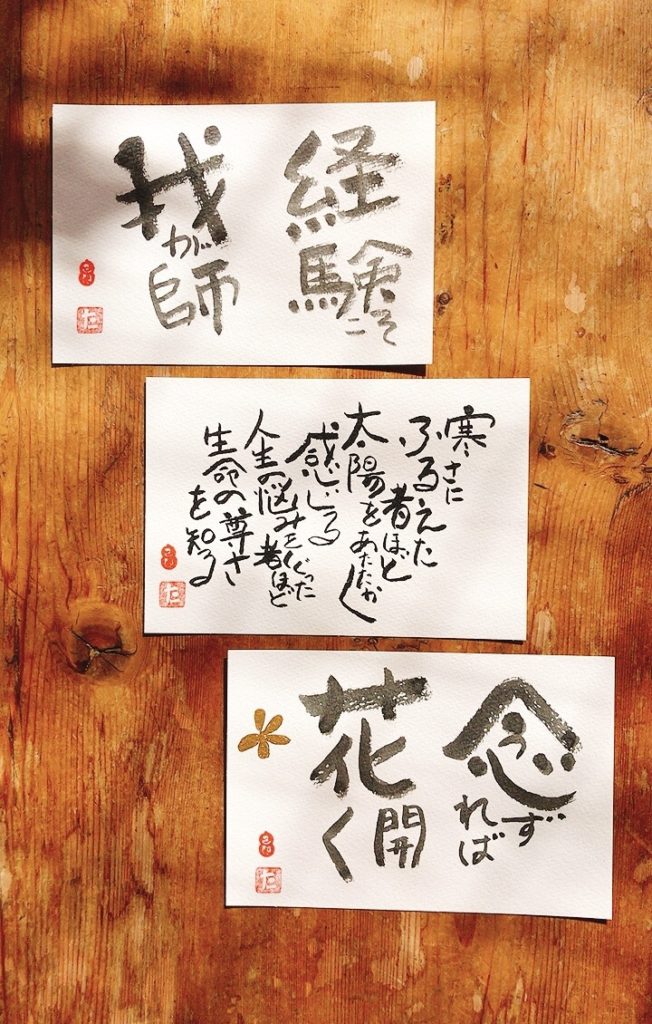 経験こそ
我が師
寒さに
ふるえた
者ほど
太陽をあたたかく
感じる
人生の悩みをくぐった
者ほど
生命の尊さ
を知る
念ずれば
花開く